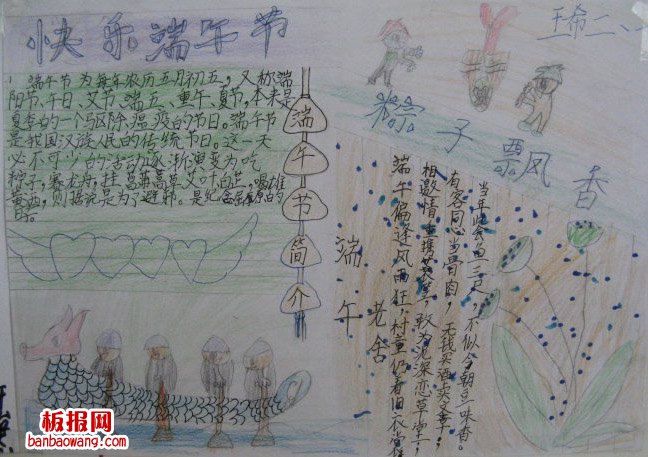 快乐端午节
王希 二、一
端午节为每年农历五月初五，又称端
阳节、午日、艾节、端五、重午、夏节，本来是
夏季的一个驱除瘟疫的节日。端午节
是我国汉族人民的传统节日。这一天
必不可少的活动逐渐演变为吃
粽子，赛龙舟，挂菖蒲蒿草艾叶白芷，喝雄
黄酒，则据说是为了避邪。是纪念屈原的
端午节简介
粽子飘风香
端午
老舍
端午偏逢风雨狂，村童仍着旧衣裳
相邀情重携蓑笠，敢为泥深恋草堂，
有客同心当骨肉，无钱买酒卖文章，
当年此会鱼三尺，不似今朝豆味香。
板报网
banbaowang.com